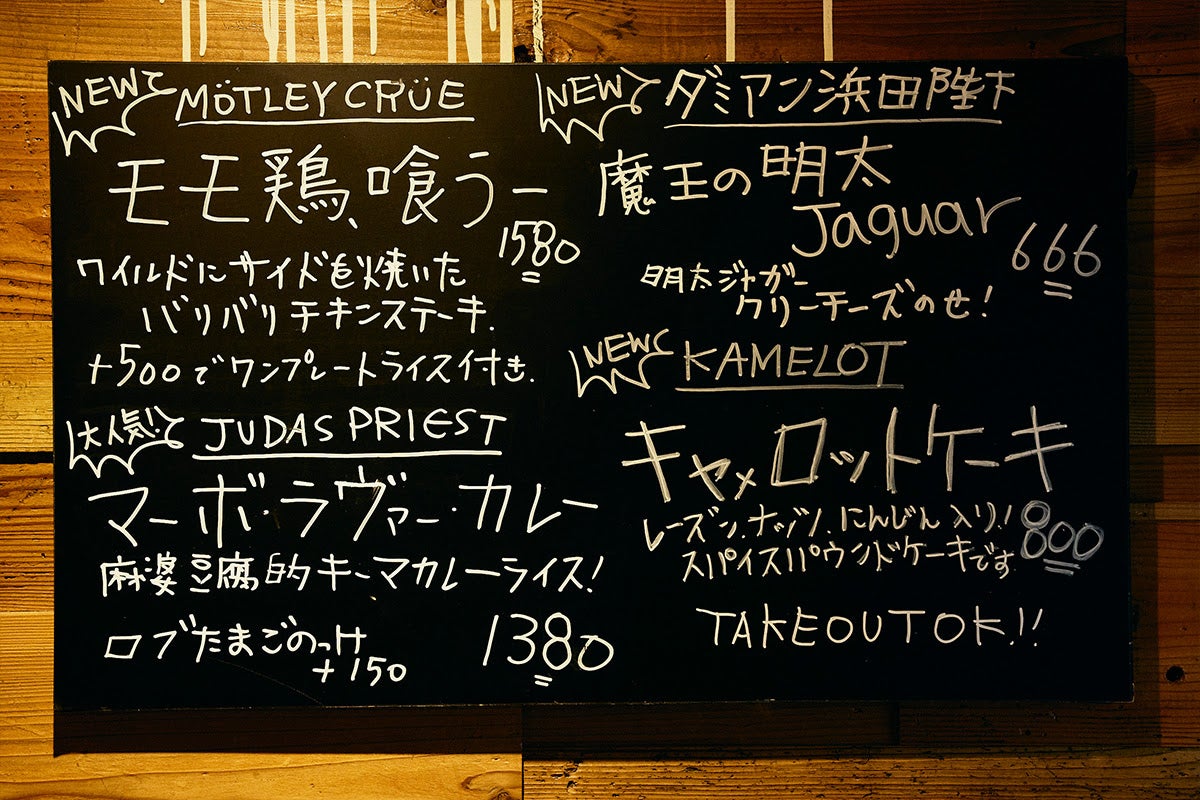 NEW
MÖTLEY CRÜE
モモ鶏、喰うー
1580
ワイルドにサイドを焼いた
バリバリチキンステーキ.
+500でワンプレートライス付き.
大人気!
JUDAS PRIEST
マーボ・ラヴァー・カレー
麻婆豆腐的キーマカレーライス!
ロブたまごのっけ
+150
1380
NEW
ダミアン浜田陛下
魔王の明太
Jaguar
666
明太ジャガー
クリーチーズのせ!
NEW
KAMELOT
キャメロットケーキ
レーズン、ナッツ、にんじん入り!
800
スパイスパウンドケーキです
TAKEOUT OK!!